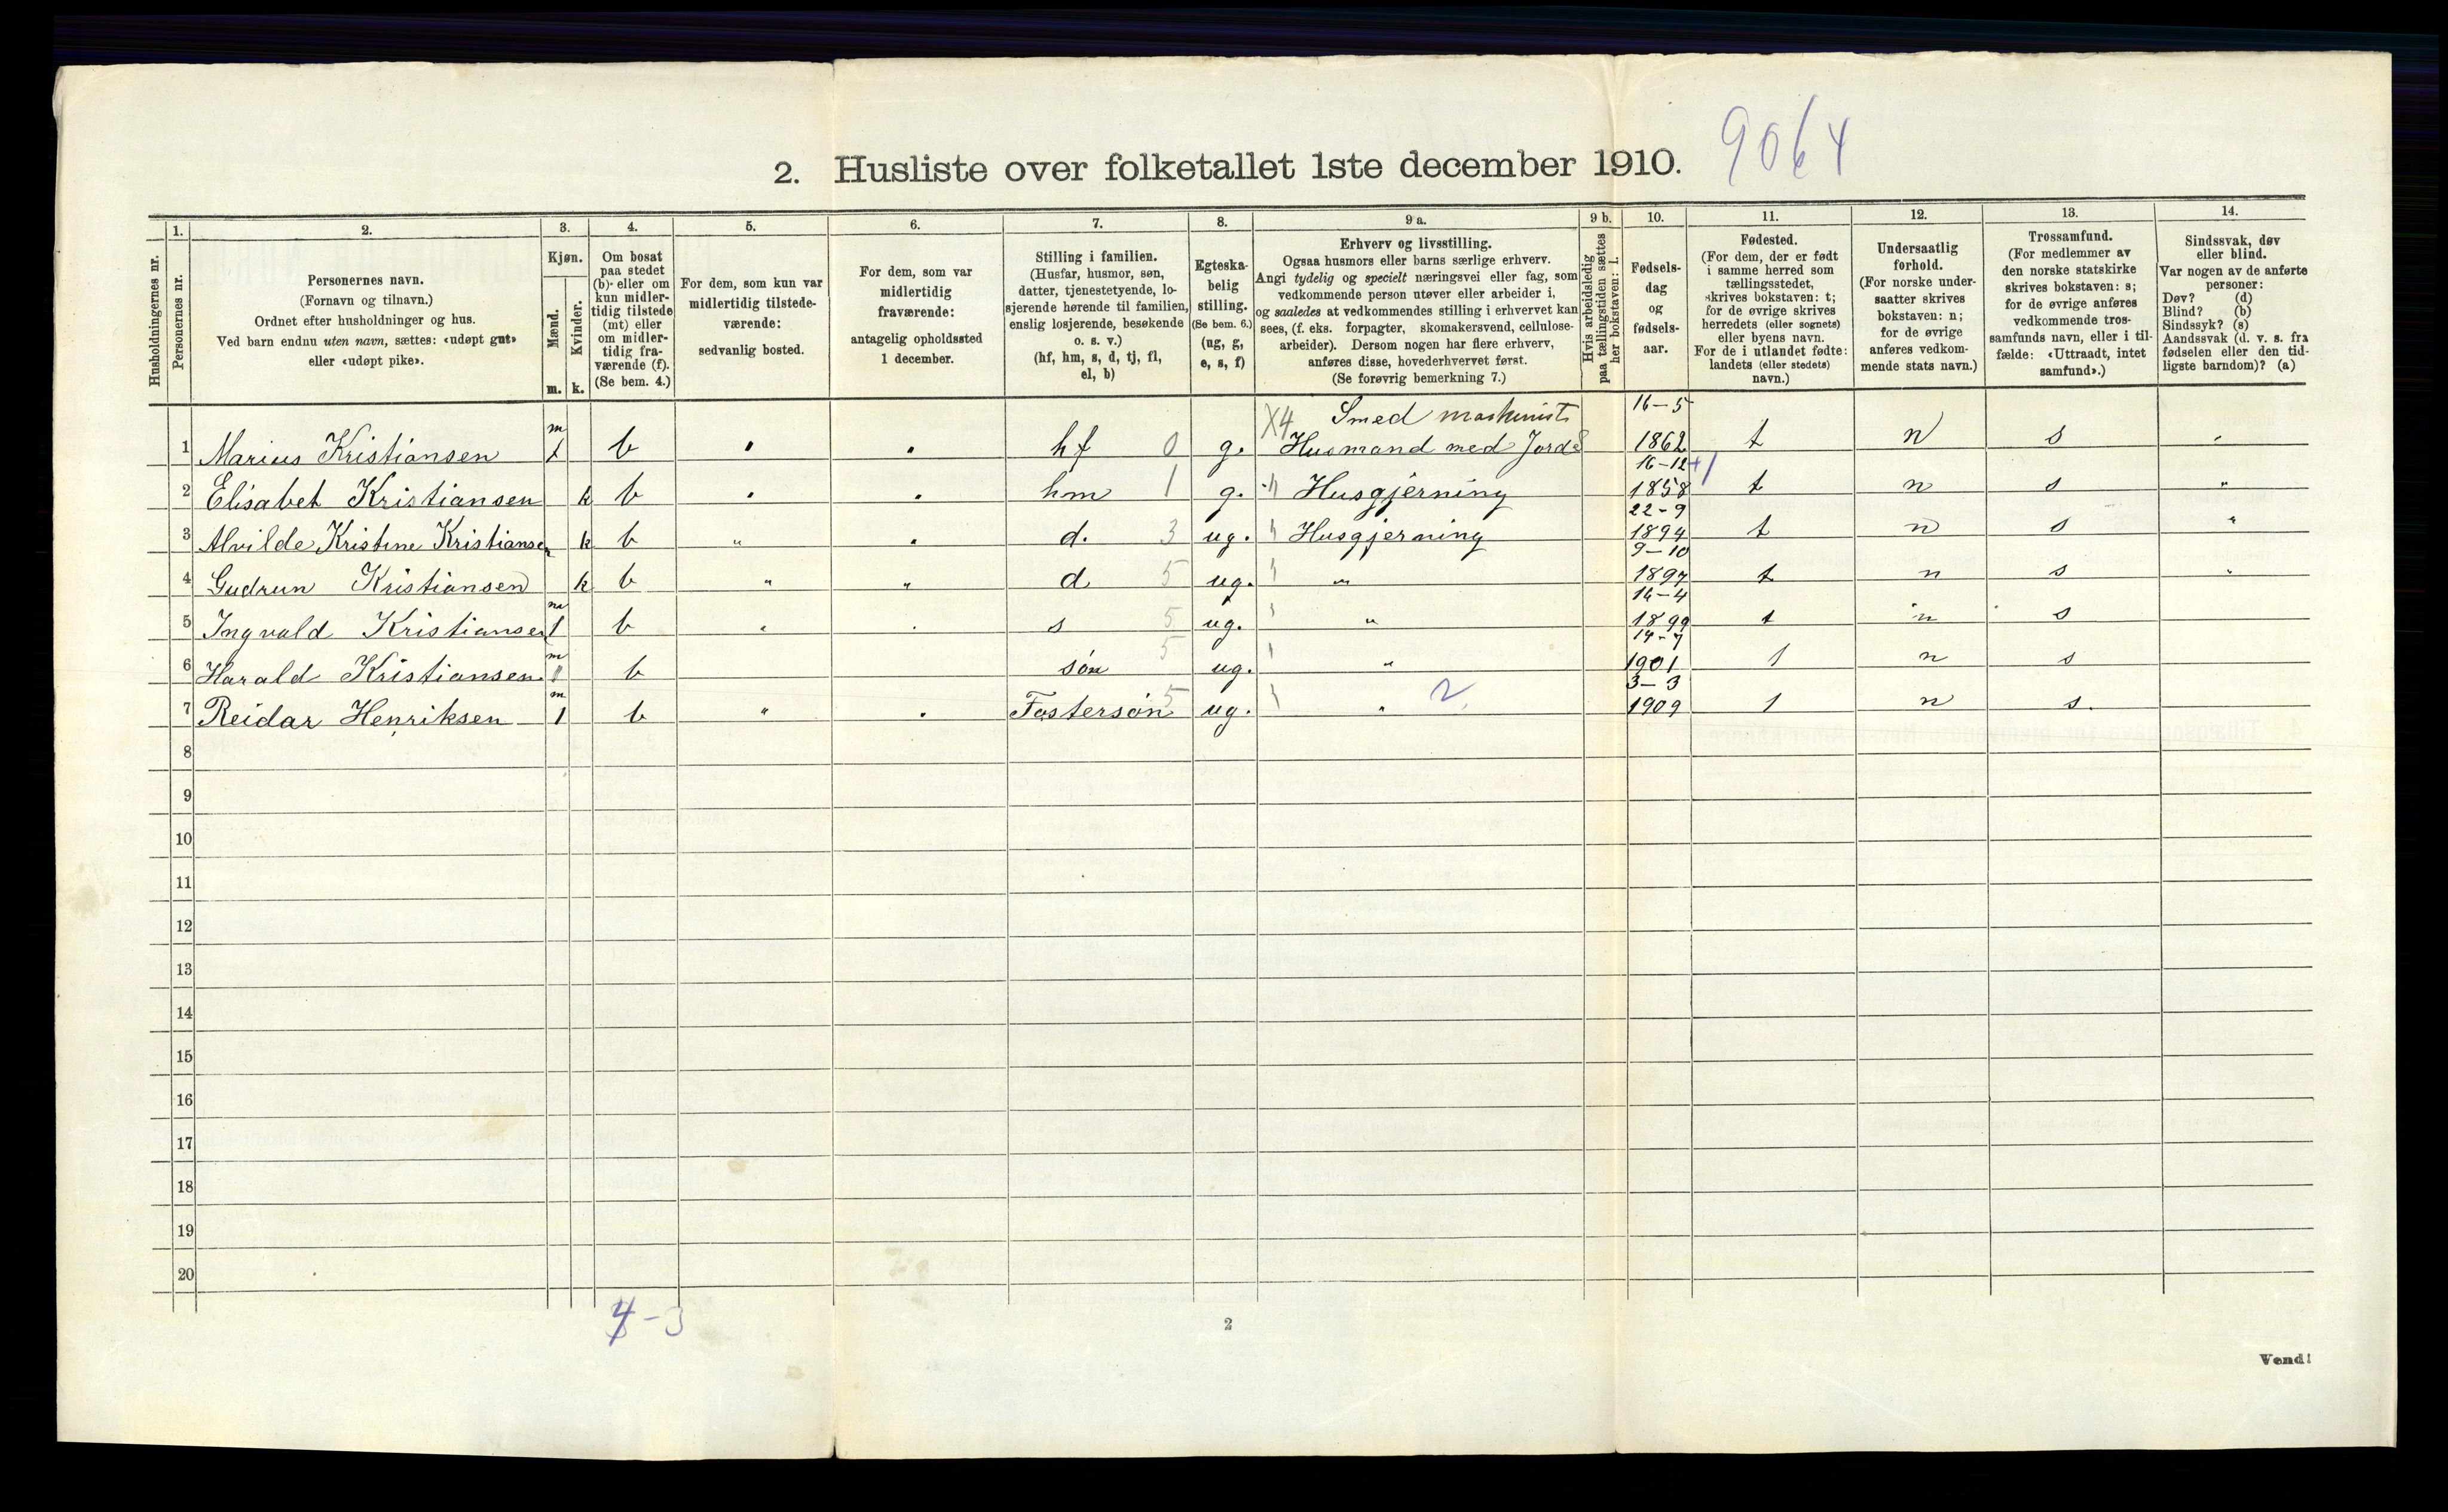 2. Husliste over folketallet 1ste december 1910. 9064
Husholdningernes nr.
1. Personernes nr.
2. Personernes navn.
(Fornavn og tilnavn.)
Ordnet efter husholdninger og hus.
Ved barn endnu uten navn, sættes: «udøpt gut»
eller «udøpt pike».
3. Kjøn.
Mænd. m.
Kvinder. k.
4. Om bosat
paa stedet
(b) eller om
kun midler-
tidig tilstede
(mt) eller
om midler-
tidig fra-
værende (f).
(Se bem. 4.)
5. For dem, som kun var
midlertidig tilstede-
værende:
sedvanlig bosted.
6. For dem, som var
midlertidig
fraværende:
antagelig opholdssted
1 december.
7. Stilling i familien.
(Husfar, husmor, søn,
datter, tjenestetyende, lo-
sjerende hørende til familien,
enslig losjerende, besøkende
o. s. v.)
(hf, hm, s, d, tj, fl,
el, b)
8. Egteska-
belig
stilling.
(Se bem. 6.)
(ug, g,
e, s, f)
9 a. Erhverv og livsstilling.
Ogsaa husmors eller barns særlige erhverv.
Angi tydelig og specielt næringsvei eller fag, som
vedkommende person utøver eller arbeider i,
og saaledes at vedkommendes stilling i erhvervet kan
sees, (f. eks. forpagter, skomakersvend, cellulose-
arbeider). Dersom nogen har flere erhverv,
anføres disse, hovederhvervet først.
(Se forøvrig bemerkning 7.)
9 b. Hvis arbeidsledig
paa tællingstiden sættes
her bokstaven: l.
10. Fødsels-
dag
og
fødsels-
aar.
11. Fødested.
(For dem, der er født
i samme herred som
tællingsstedet,
skrives bokstaven: t;
for de øvrige skrives
herredets (eller sognets)
eller byens navn.
For de i utlandet fødte:
landets (eller stedets)
navn.)
12. Undersaatlig
forhold.
(For norske under-
saatter skrives
bokstaven: n;
for de øvrige
anføres vedkom-
mende stats navn.)
13. Trossamfund.
(For medlemmer av
den norske statskirke
skrives bokstaven: s;
for de øvrige anføres
vedkommende tros-
samfunds navn, eller i til-
fælde: «Uttraadt, intet
samfund».)
14. Sindssvak, døv
eller blind.
Var nogen av de anførte
personer:
Døv? (d)
Blind? (b)
Sindssyk? (s)
Aandssvak (d. v. s. fra
fødselen eller den tid-
ligste barndom)? (a)
X4 Smed maskinist 16-5
1 Marius Kristiansen m b hf 0 g. Husmand med Jord 1862 t n s
16-12
2 Elisabet Kristiansen k b hm 1 g. Husgjerning 1858 t n s "
22-9
3 Alvilde Kristine Kristiansen k b " d. 3 ug. Husgjerning 1894 t n s "
9-10
4 Gudrun Kristiansen k b " " d 5 ug. " 1897 t n s "
5 Ingvald Kristiansen m 1 b " s 5 ug. " 1899 t n s
14-7
6 Harald Kristiansen m b søn 5 ug. " 1901 1 n s
3-3
7 Reidar Henriksen m 1 b " Fostersøn 5 ug. " 2 1909 1 n s.
8
9
10
11
12
13
14
15
16
17
18
19
20
4-3
2
Vend!